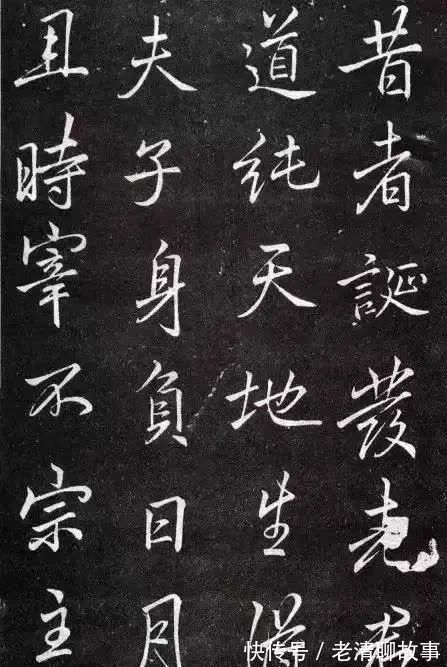 昔者誕發
道純天地生
夫子身負日月
且時宰不宗主
快传号 / 老清聊故事